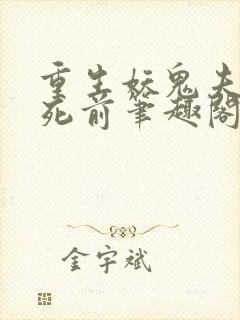 重生妖鬼夫
死前笔趣阁
金宇斌